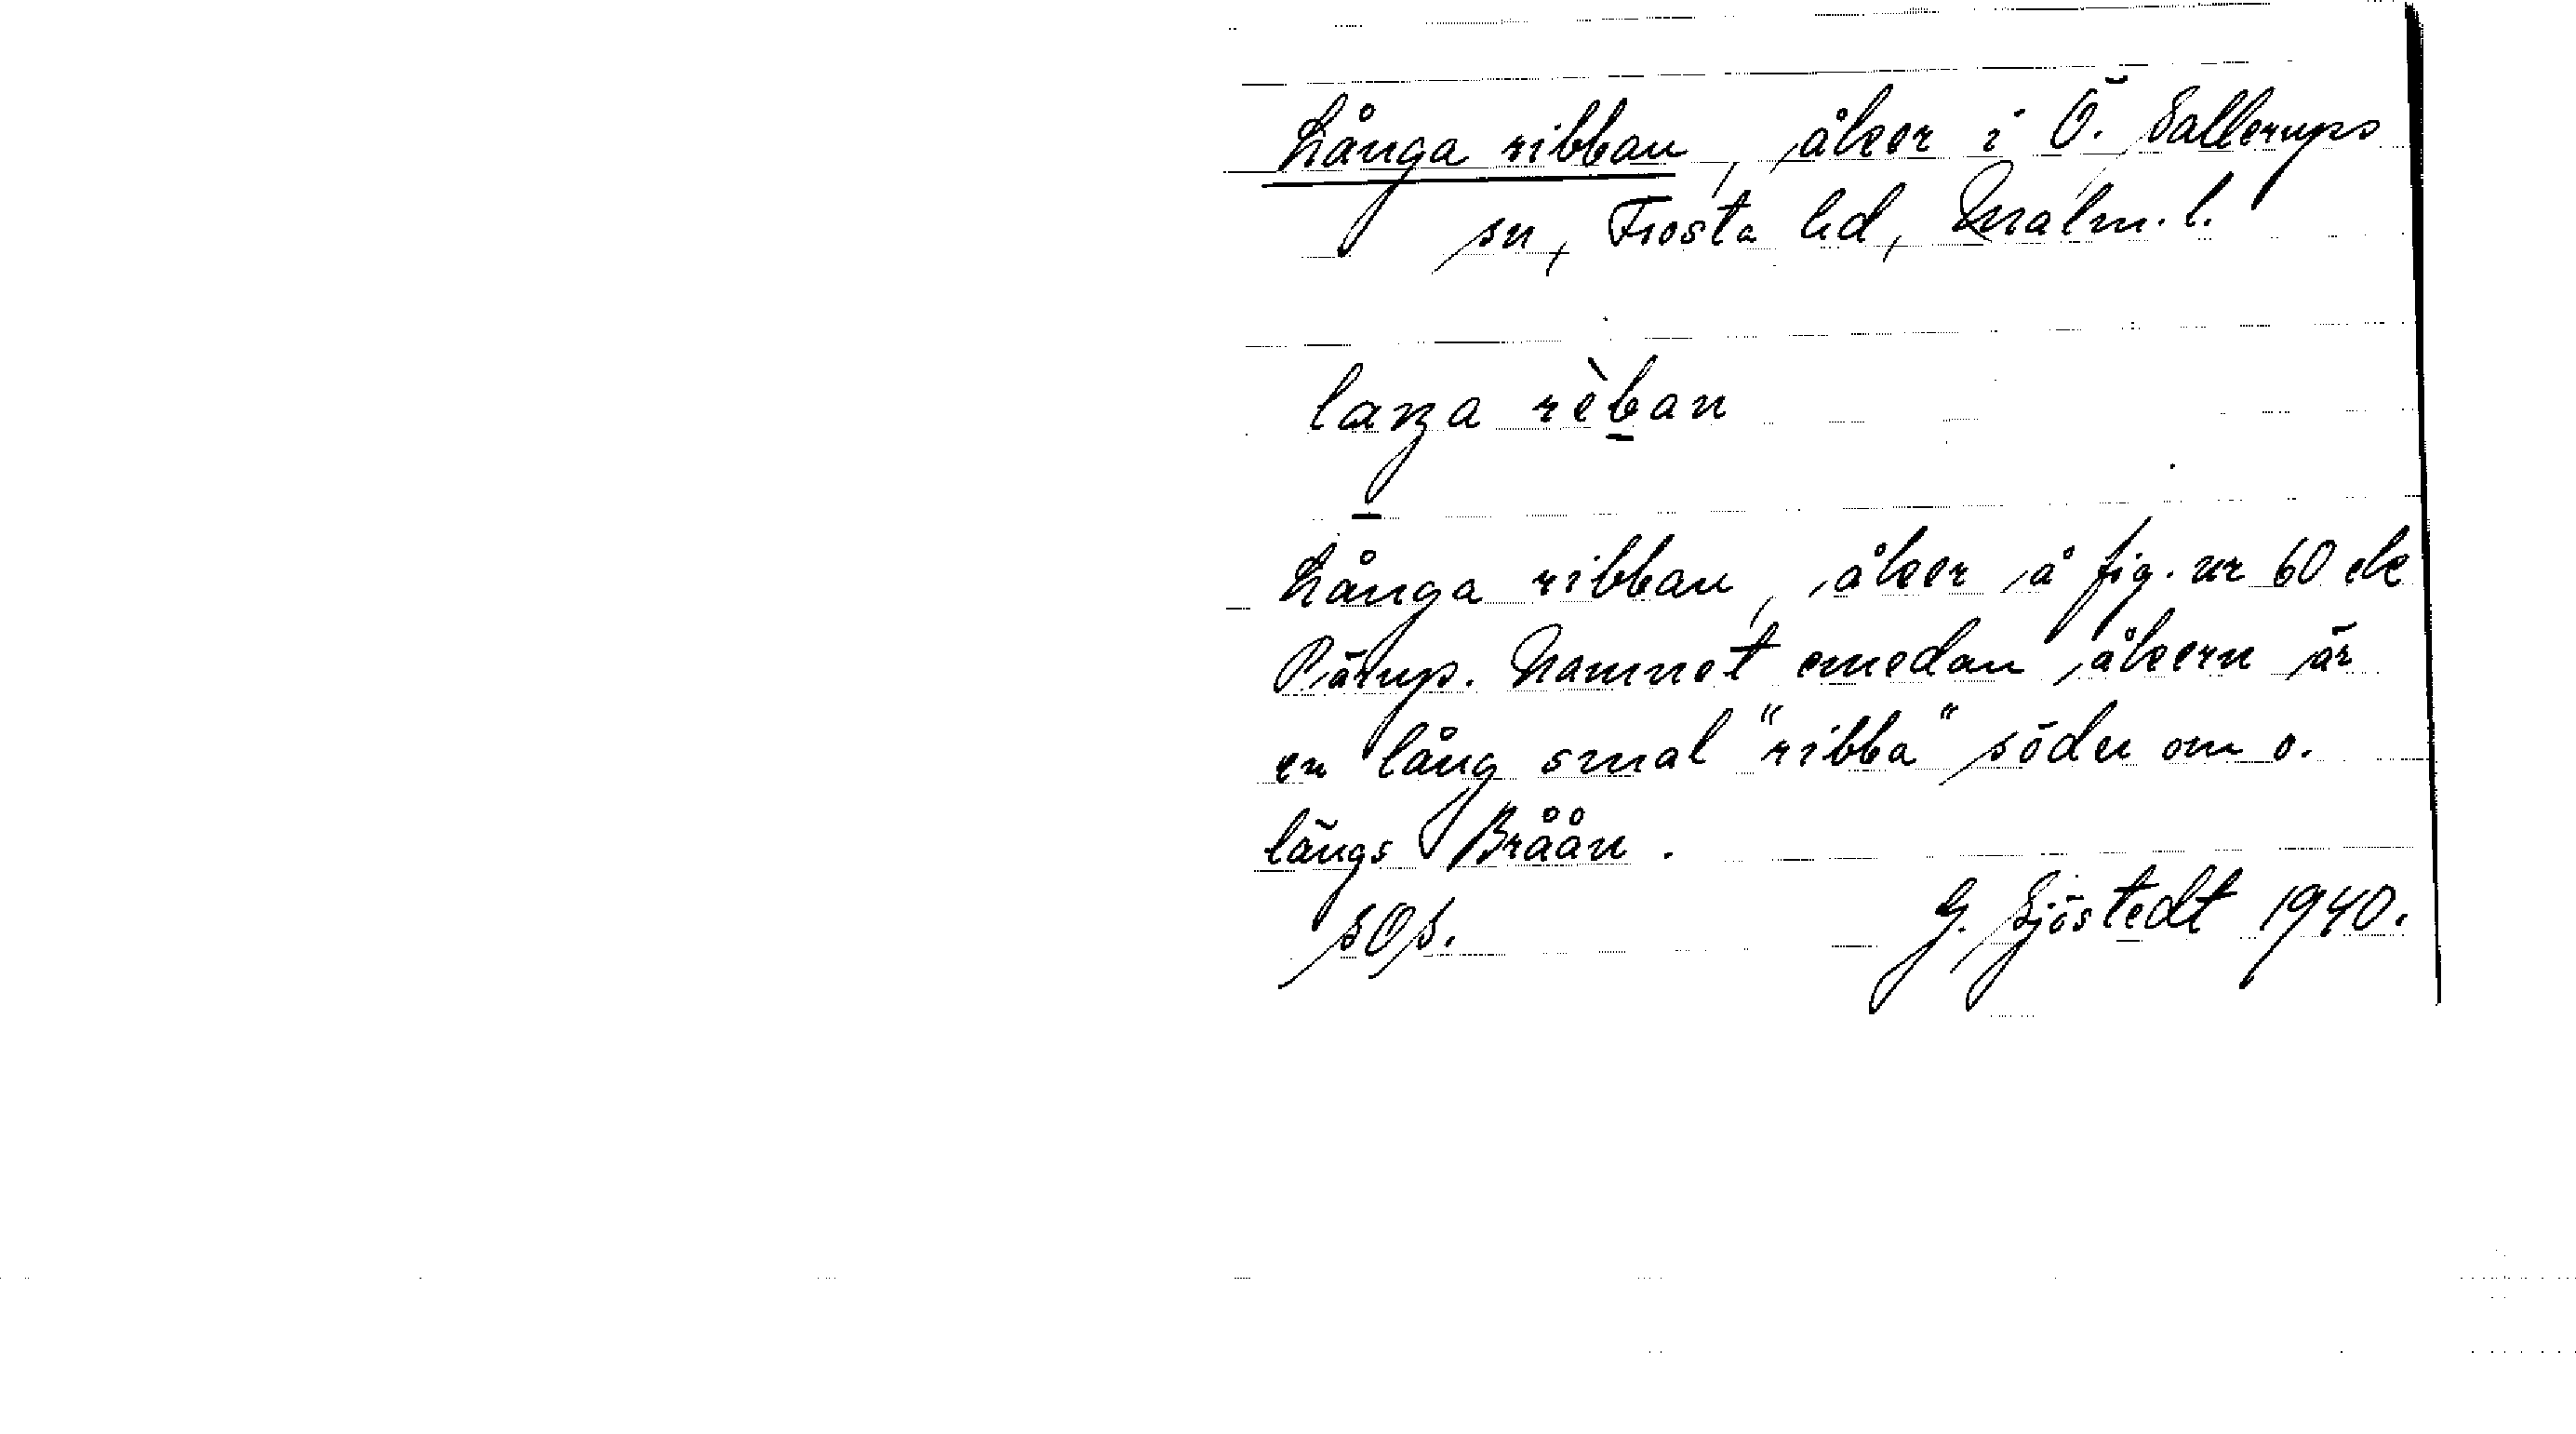 Långa ribban, åker i Ö. Sallerups
sn, Frosta hd, Malm. l.
laŋa rèban
Långa ribban, åker å fig. nr 60 ek
Pärup. Namnet emedan åkern är
en lång smal "ribba" söder om o.
längs Bråån.
SOS. G. Sjöstedt 1940.